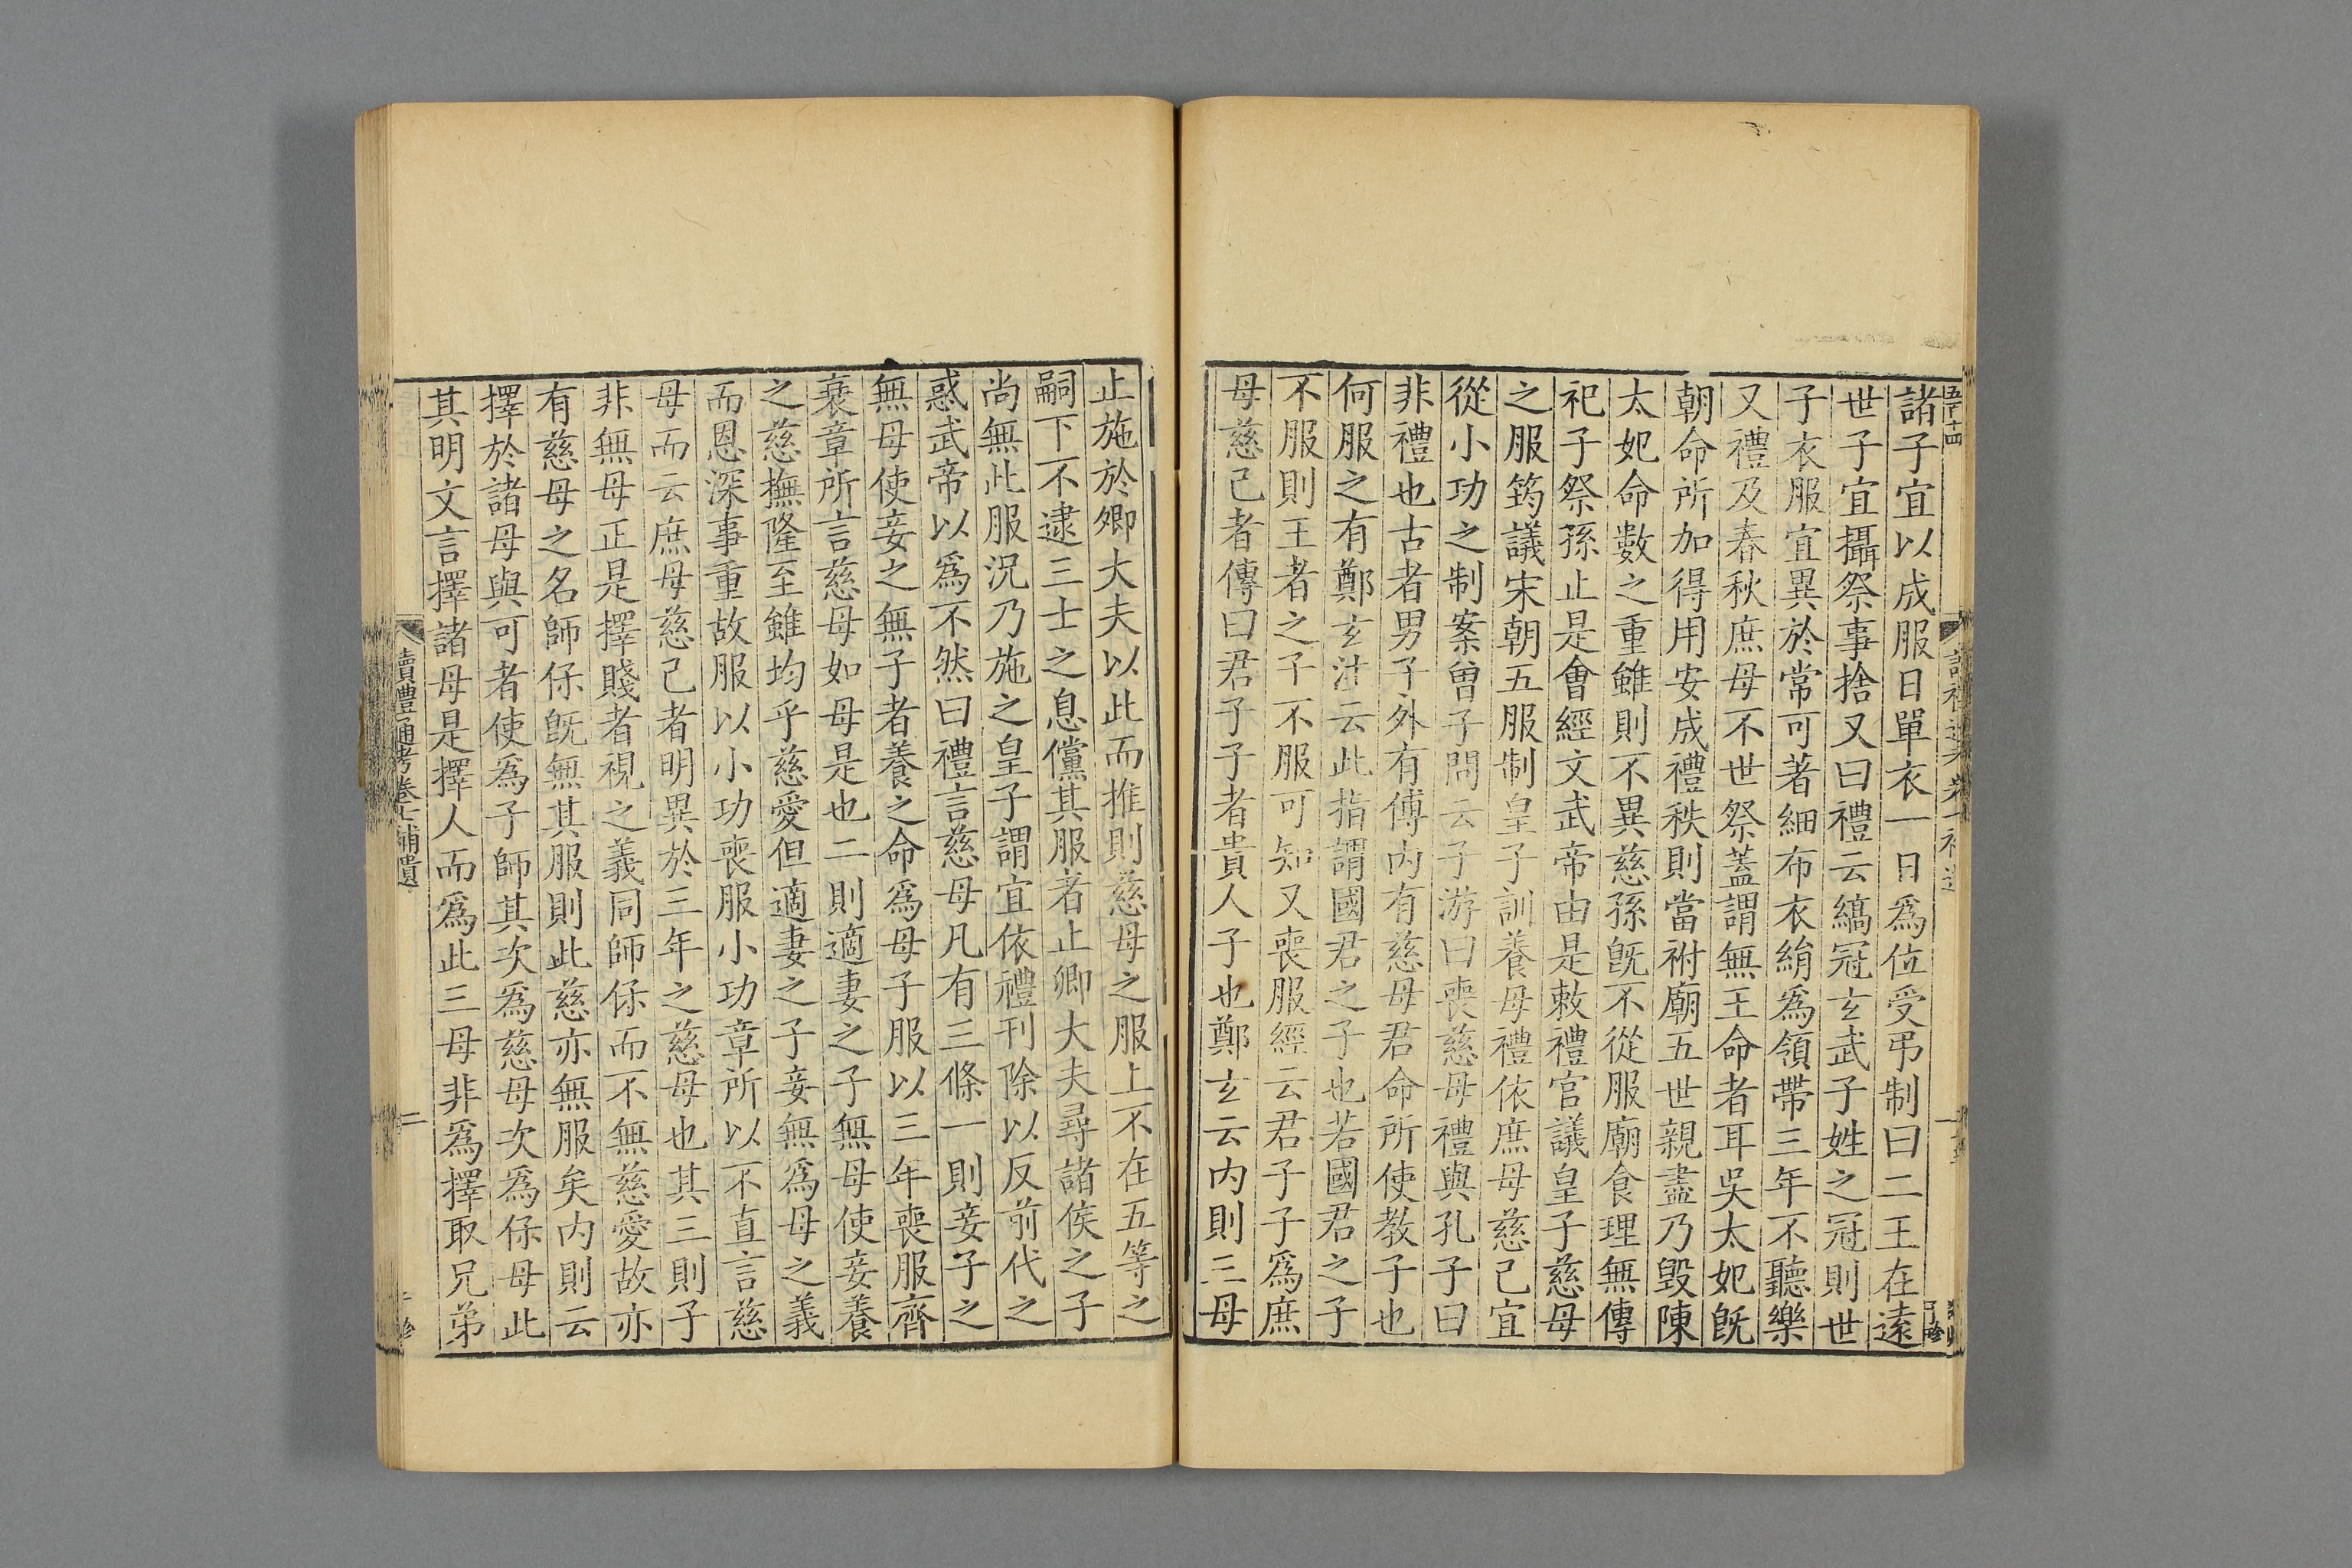 諸子宜以成服日單衣一日爲位受弔制曰二王在遠
世子宜攝祭事捨又曰禮云縞冠玄武子姓之冠則世
子衣服宜異於常可著細布衣絹爲領帶三年不聽樂
又禮及春秋庶母不世祭蓋謂無王命者耳吳太妃旣
朝命所加得用安成禮秩則當祔廟五世親盡乃毀陳
太妃命數之重雖則不異慈孫旣不從服廟食理無傳
祀子祭孫止是會經文武帝由是敕禮官議皇子慈母
之服筠議宋朝五服制皇子訓養母禮依庶母慈己宜
從小功之制案曾子問云子游曰喪慈母禮與孔子曰
非禮也古者男子外有傅内有慈母君命所使教子也
何服之有鄭玄注云此指謂國君之子也若國君之子
不服則王者之子不服可知又喪服經云君子子爲庶
母慈己者傳曰君子子者貴人子也鄭玄云内則三母
止施於卿大夫以此而推則慈母之服上不在五等之
嗣下不逮三士之息儻其服者止卿大夫尋諸侯之子
尚無此服況乃施之皇子謂宜依禮刊除以反前代之
惑武帝以爲不然曰禮言慈母凡有三條一則妾子之
無母使妾之無子者養之命爲母子服以三年喪服齊
衰章所言慈母如母是也二則適妻之子無母使妾養
之慈撫隆至雖均乎慈愛但適妻之子妾無爲母之義
而恩深事重故服以小功喪服小功章所以不直言慈
母而云庶母慈己者明異於三年之慈母也其三則子
非無母正是擇賤者視之義同師保而不無慈愛故亦
有慈母之名師保旣無其服則此慈亦無服矣内則云
擇於諸母與可者使爲子師其次爲慈母次爲保母此
其明文言擇諸母是擇人而爲此三母非爲擇取兄弟
讀禮通考卷七補遺
二